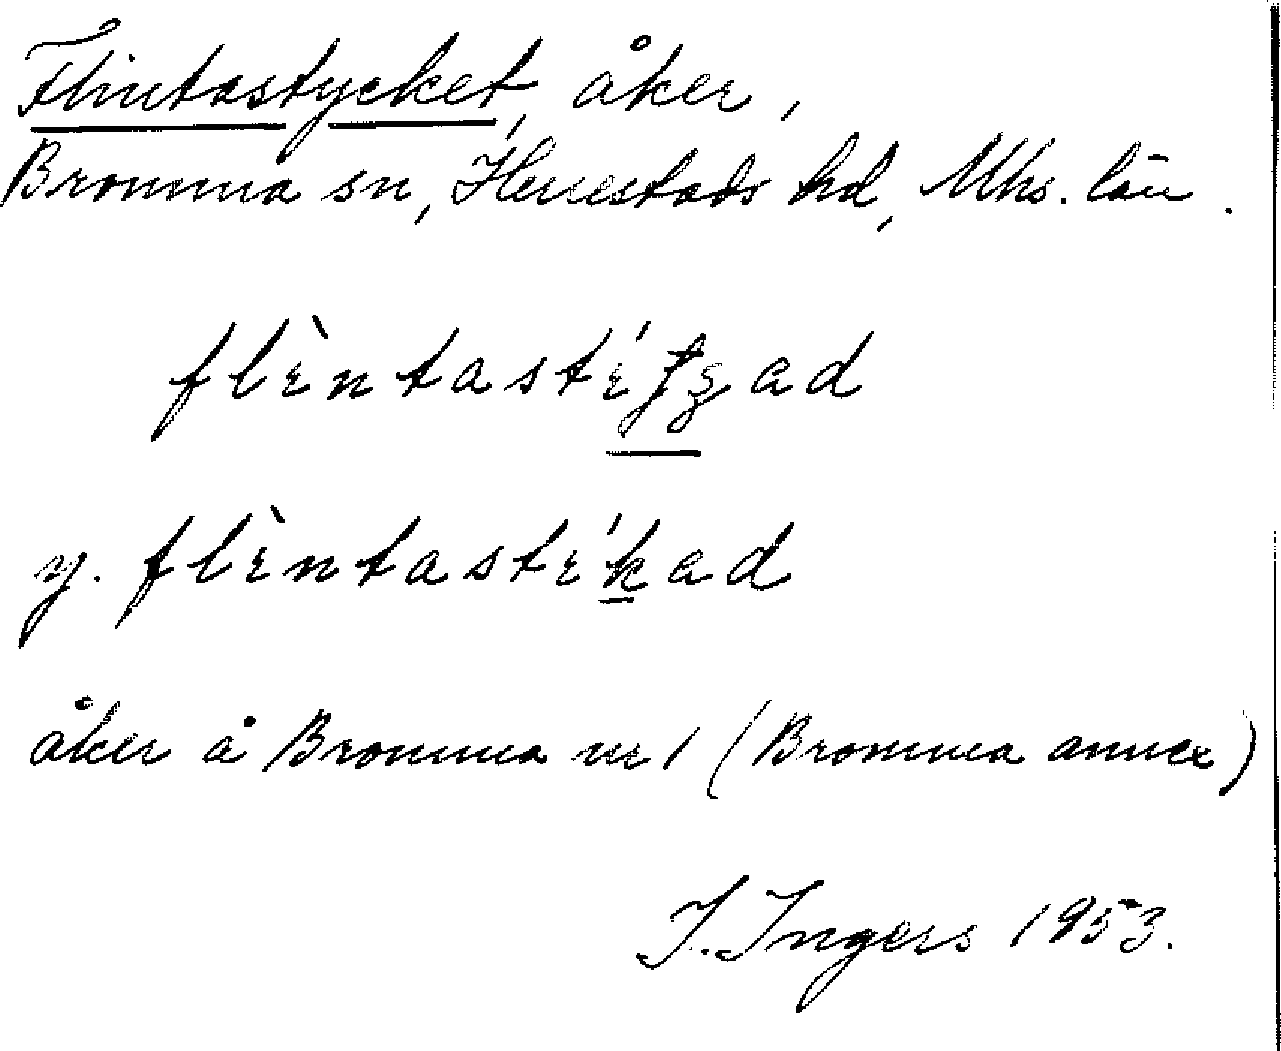 Flintastycket, åker,
Bromma sn, Herrestads hd, Mhs. län.
flɛ̀ntastɛ́ʈʂad
y. flɛ̀ntastɛ́kad
åker å Bromma nr 1 (Bromma annex)
I. Ingers 1953.